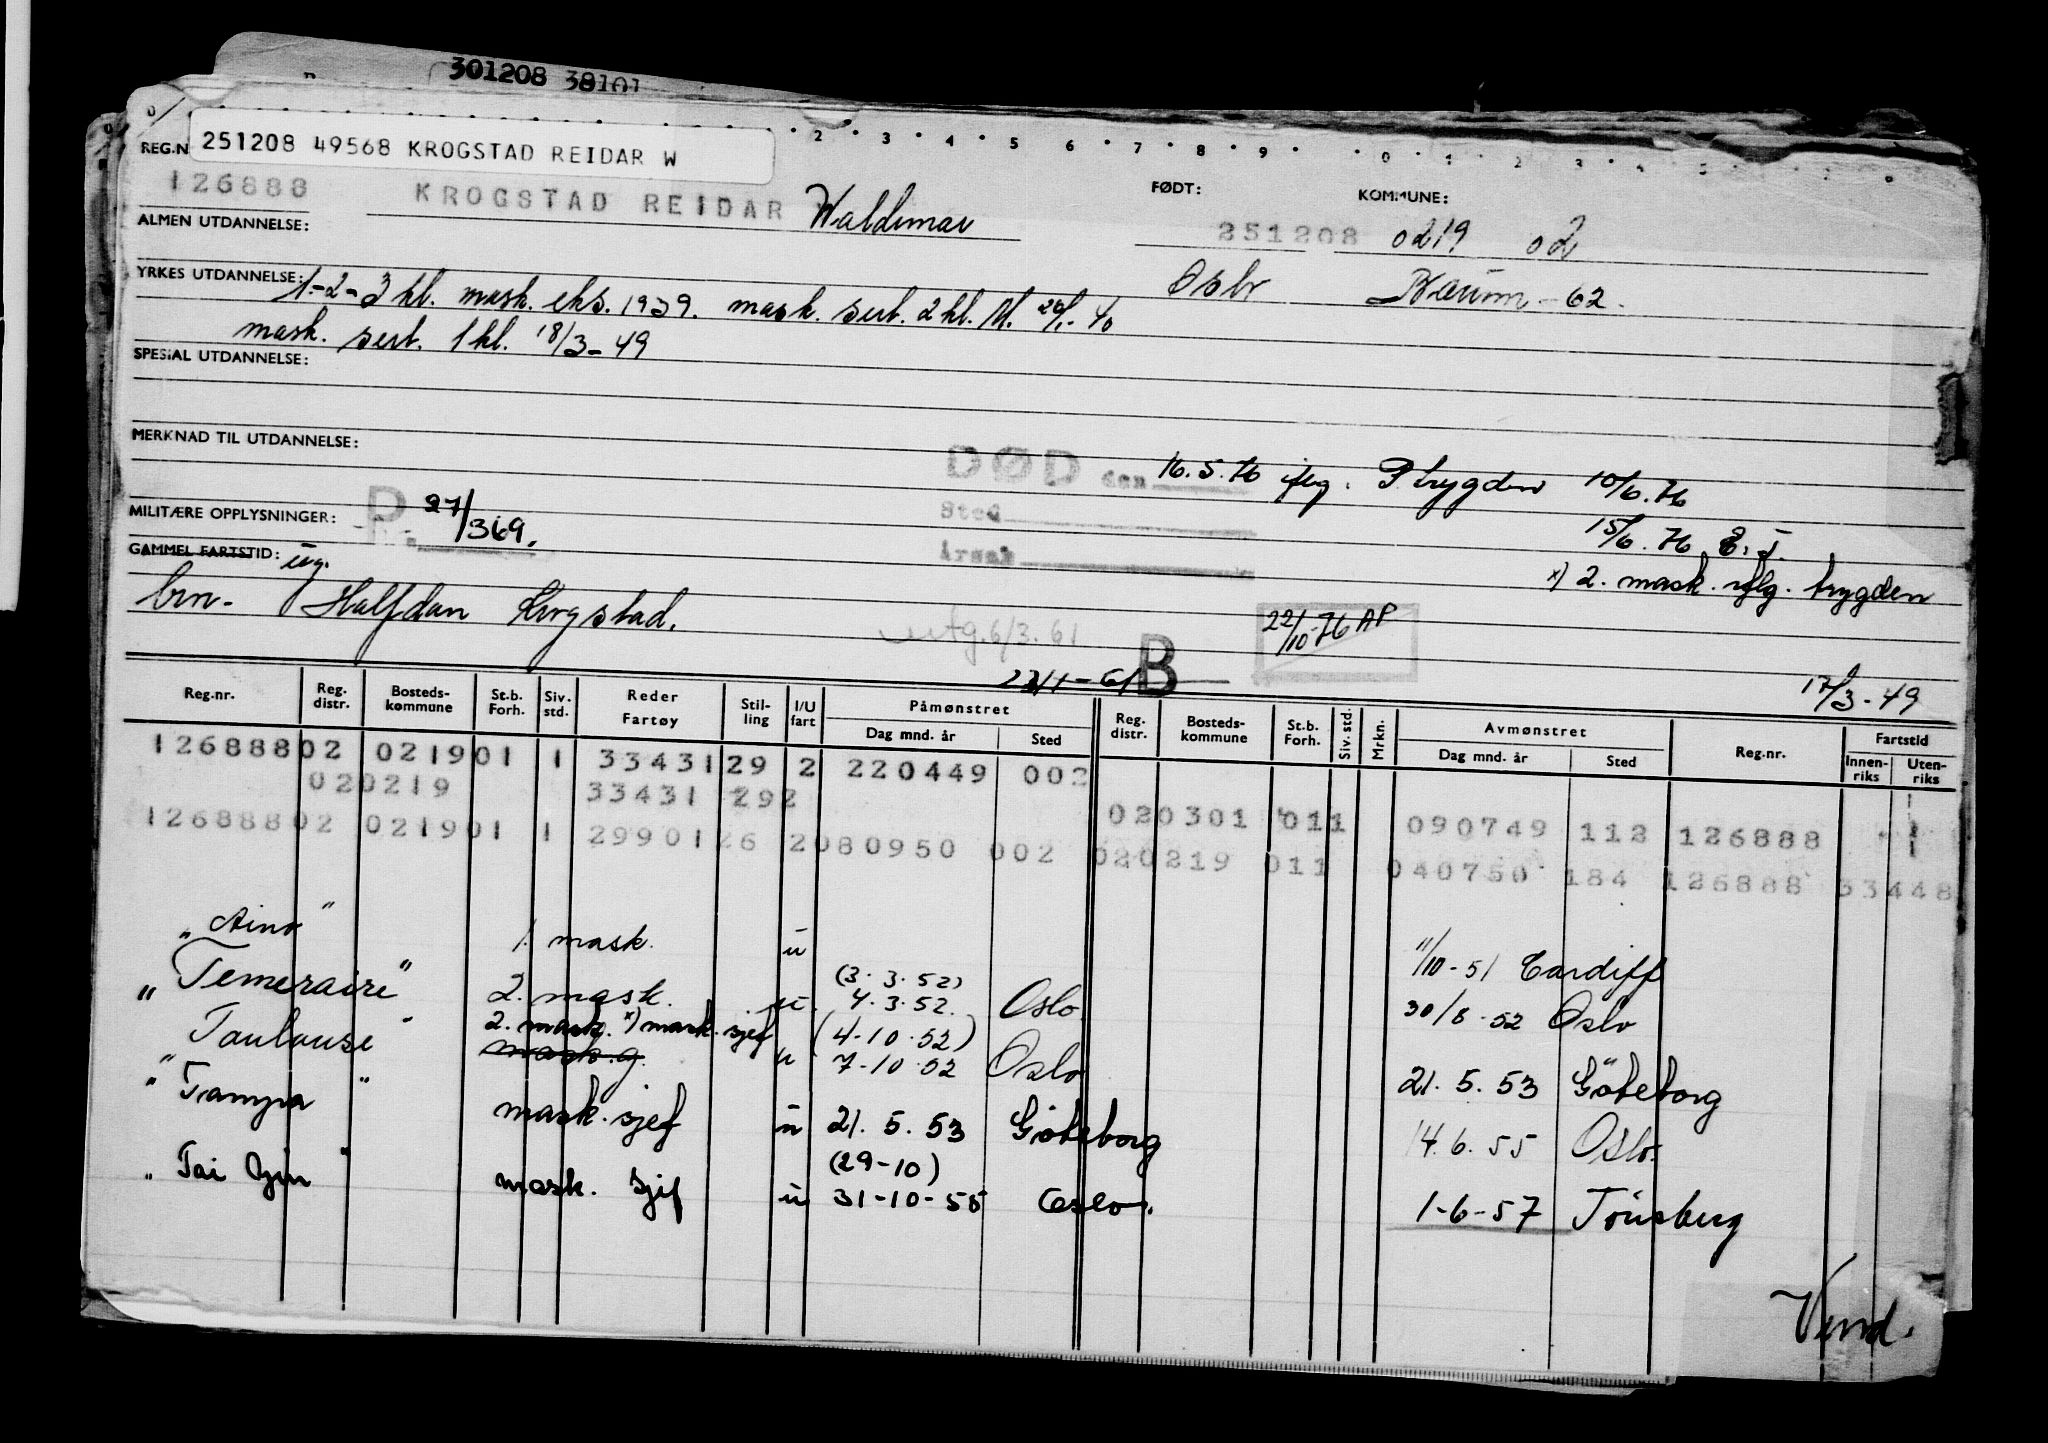 301208 38101
251208 49568 KROGSTAD REIDAR W
REG.N
126888 KROGSTAD REIDAR Waldemar
FØDT: KOMMUNE:
251208 0219 02
ALMEN UTDANNELSE:
Oslo Bærum - 62.
YRKES UTDANNELSE: 1.-2-3 kl. mask. eks. 1939. mask. sert. 2 kl. M. /1-40
mask. sert. 1 kl. 18/3-49
SPESIAL UTDANNELSE:
MERKNAD TIL UTDANNELSE:
DØD den 16.5.76 iflg. P.trygden 10/6.76
Sted 15/6.76
Årsak
MILITÆRE OPPLYSNINGER: D 27/369.
GAMMEL FARTSTID:
x) 2. mask. iflg. trygden
Halfdan Krogstad.
utg. 6/3.61
22/10-76 AP
B
17/3-49
Reg.nr. Reg. distr. Bosteds-kommune St.b. Forh. Siv. std. Reder Fartøy Stil-ling I/U fart Påmønstret Dag mnd. år Sted Reg. distr. Bosteds-kommune St.b. Forh. Siv. std. Mrkn. Avmønstret Dag mnd. år Sted Reg.nr. Fartstid Innen-riks Uten-riks
126888 02 0219 01 1 33431 29 2 220449 002
020219 33431 292
020301 011 090749 112 126888
126888 02 0219 01 1 29901 26 2 080950 002
020219 011 040750 184 126888 33448
"Aino" 1. mask. u 11/10-51 Cardiff
"Temeraire" 2. mask. u. (3.3.52) 4.3.52. Oslo 30/8-52 Oslo
"Toulouse" 2. mask. x) mask. sjef u (4-10.52) 7-10.52 Oslo 21.5.53 Göteborg
"Tampa" mask. sjef u 21.5.53 Göteborg 14.6.55 Oslo.
"Tai Yin" mask. sjef u (29-10) 31-10-55 Oslo. 1-6-57 Tönsberg
Vend.